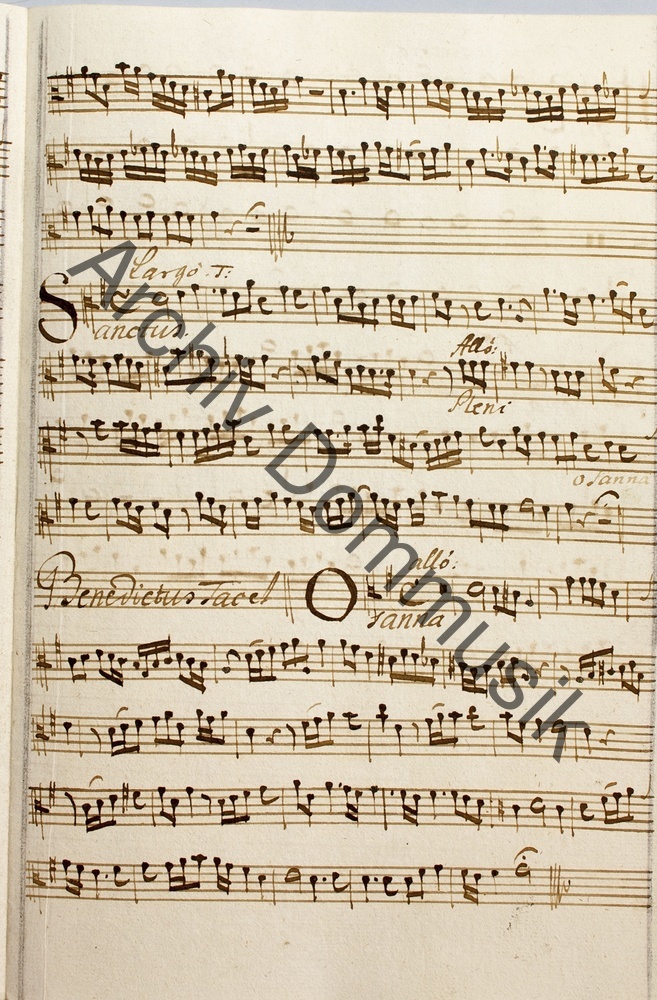 Largo. T:
Sanctus.
Allo:
Pleni
Osanna
Benedictus Tacet
allo:
Osanna
Archiv Dommusik